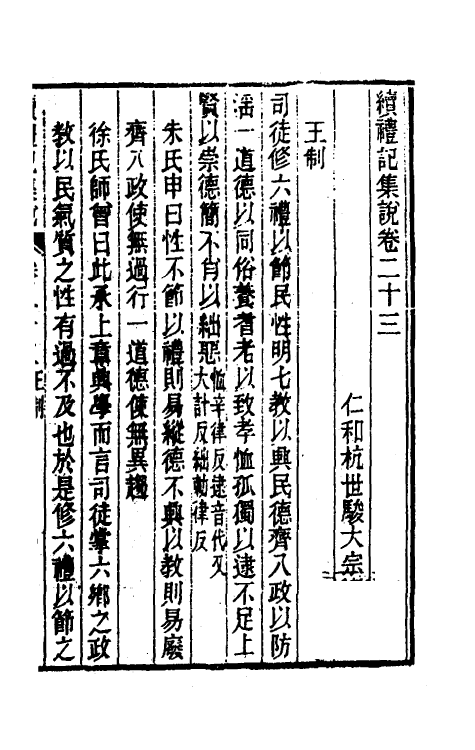 續禮記集說卷二十三
仁和杭世駿大宗
王制
司徒修六禮以節民性明七教以興民德齊八政以防
淫一道德以同俗養耆老以致孝恤孤獨以逮不足上
賢以崇德簡不肖以絀惡恤辛律反逮音代又
大計反絀勑律反
朱氏申曰性不節以禮則易縱德不興以教則易廢
齊八政使無過行一道德使無異趨
徐氏師曾曰此承上章興學而言司徒掌六鄉之政
教以民氣質之性有過不及也於是修六禮以節之